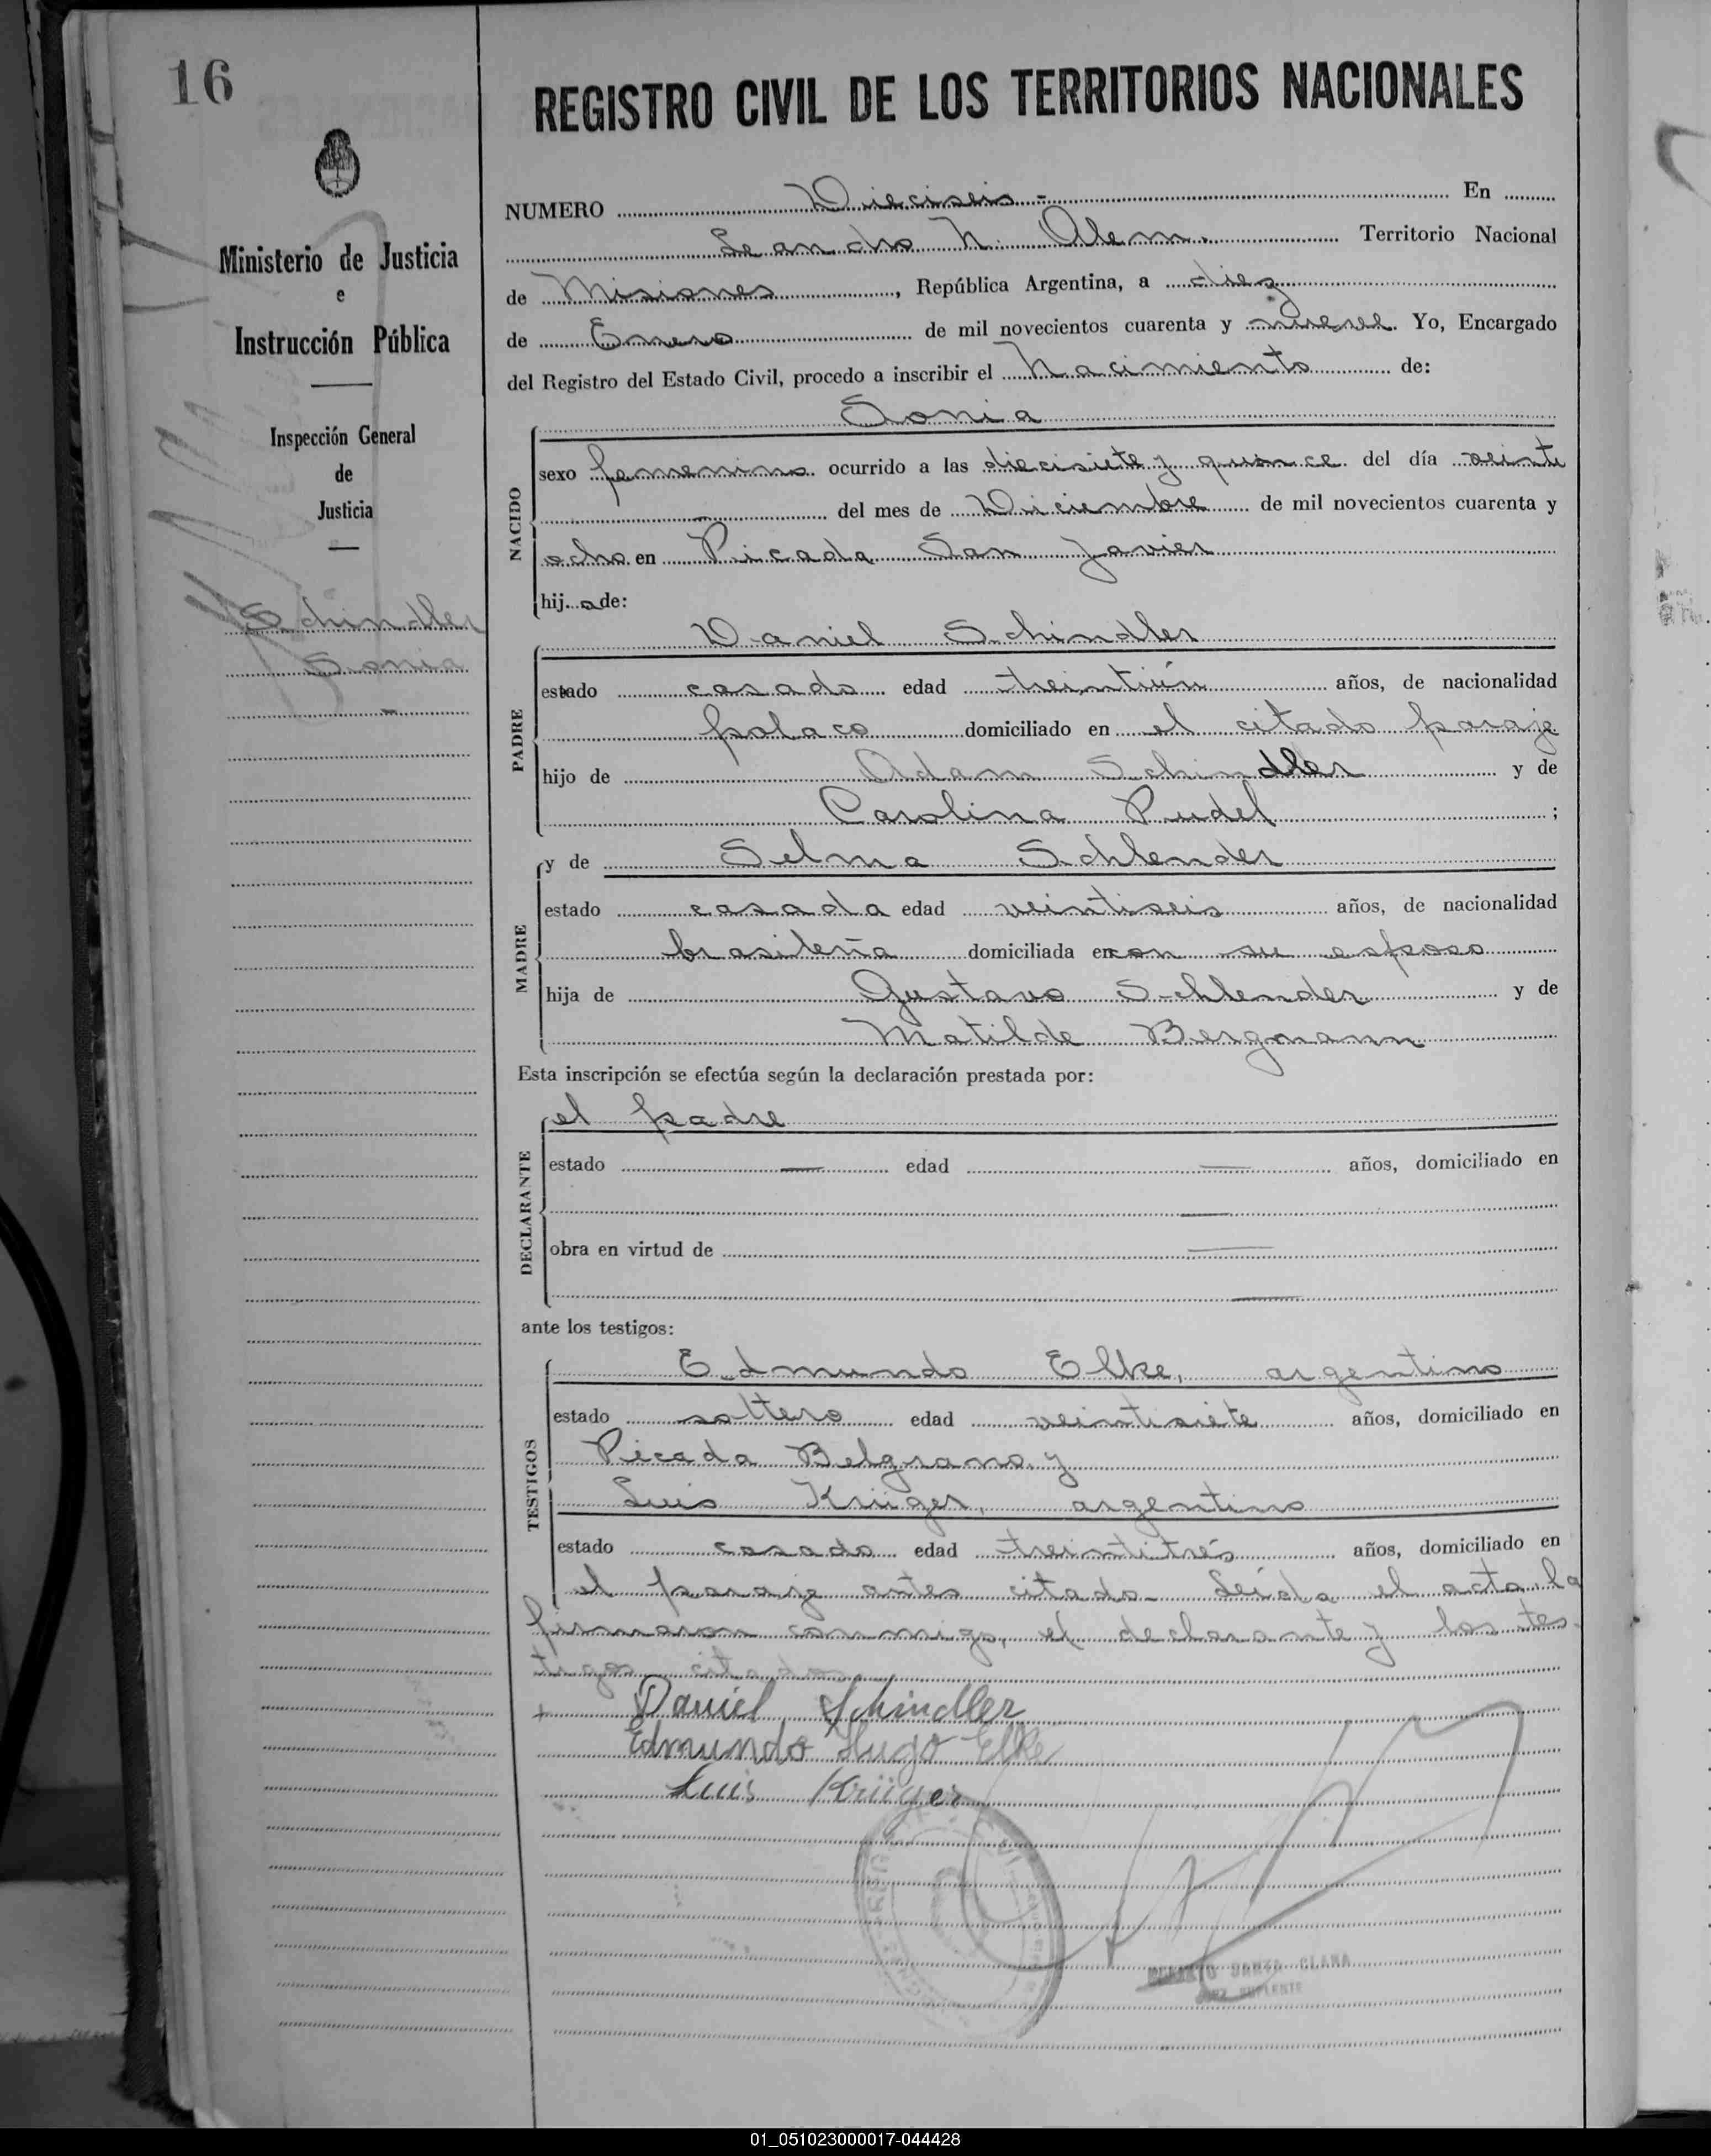 16
REGISTRO CIVIL DE LOS TERRITORIOS NACIONALES
Ministerio de Justicia
e
Instrucción Pública
Inspección General
de
Justicia
Schindler
Sonia
NUMERO Dieciseis - En
Leandro N. Alem. Territorio Nacional
de Misiones, República Argentina, a diez
de Enero de mil novecientos cuarenta y nueve. Yo, Encargado
del Registro del Estado Civil, procedo a inscribir el Nacimiento de:
Sonia
NACIDO
sexo femenino ocurrido a las diecisiete y quince del día veinte
del mes de Diciembre de mil novecientos cuarenta y
ocho en Picada San Javier
hija de:
Daniel Schindler
PADRE
estado casado edad treintiún años, de nacionalidad
polaco domiciliado en el citado paraje
hijo de Adam Schindler y de
Carolina Pudel ;
y de Selma Schlender
MADRE
estado casada edad veintiseis años, de nacionalidad
brasileña domiciliada en con su esposo
hija de Gustavo Schlender y de
Matilde Bergmann
Esta inscripción se efectúa según la declaración prestada por:
el padre
DECLARANTE
estado — edad — años, domiciliado en
obra en virtud de —
ante los testigos:
Edmundo Elke, argentino
TESTIGOS
estado soltero edad veintisiete años, domiciliado en
Picada Belgrano y
Luis Krüger, argentino
estado casado edad treintitrés años, domiciliado en
el paraje antes citado - Leída el acta, la
firmaron conmigo, el declarante y los tes-
tigos citados
Daniel Schindler
Edmundo Hugo Elke
Luis Krüger
SANTA CLARA
JUEZ SUPLENTE
01_051023000017-044428